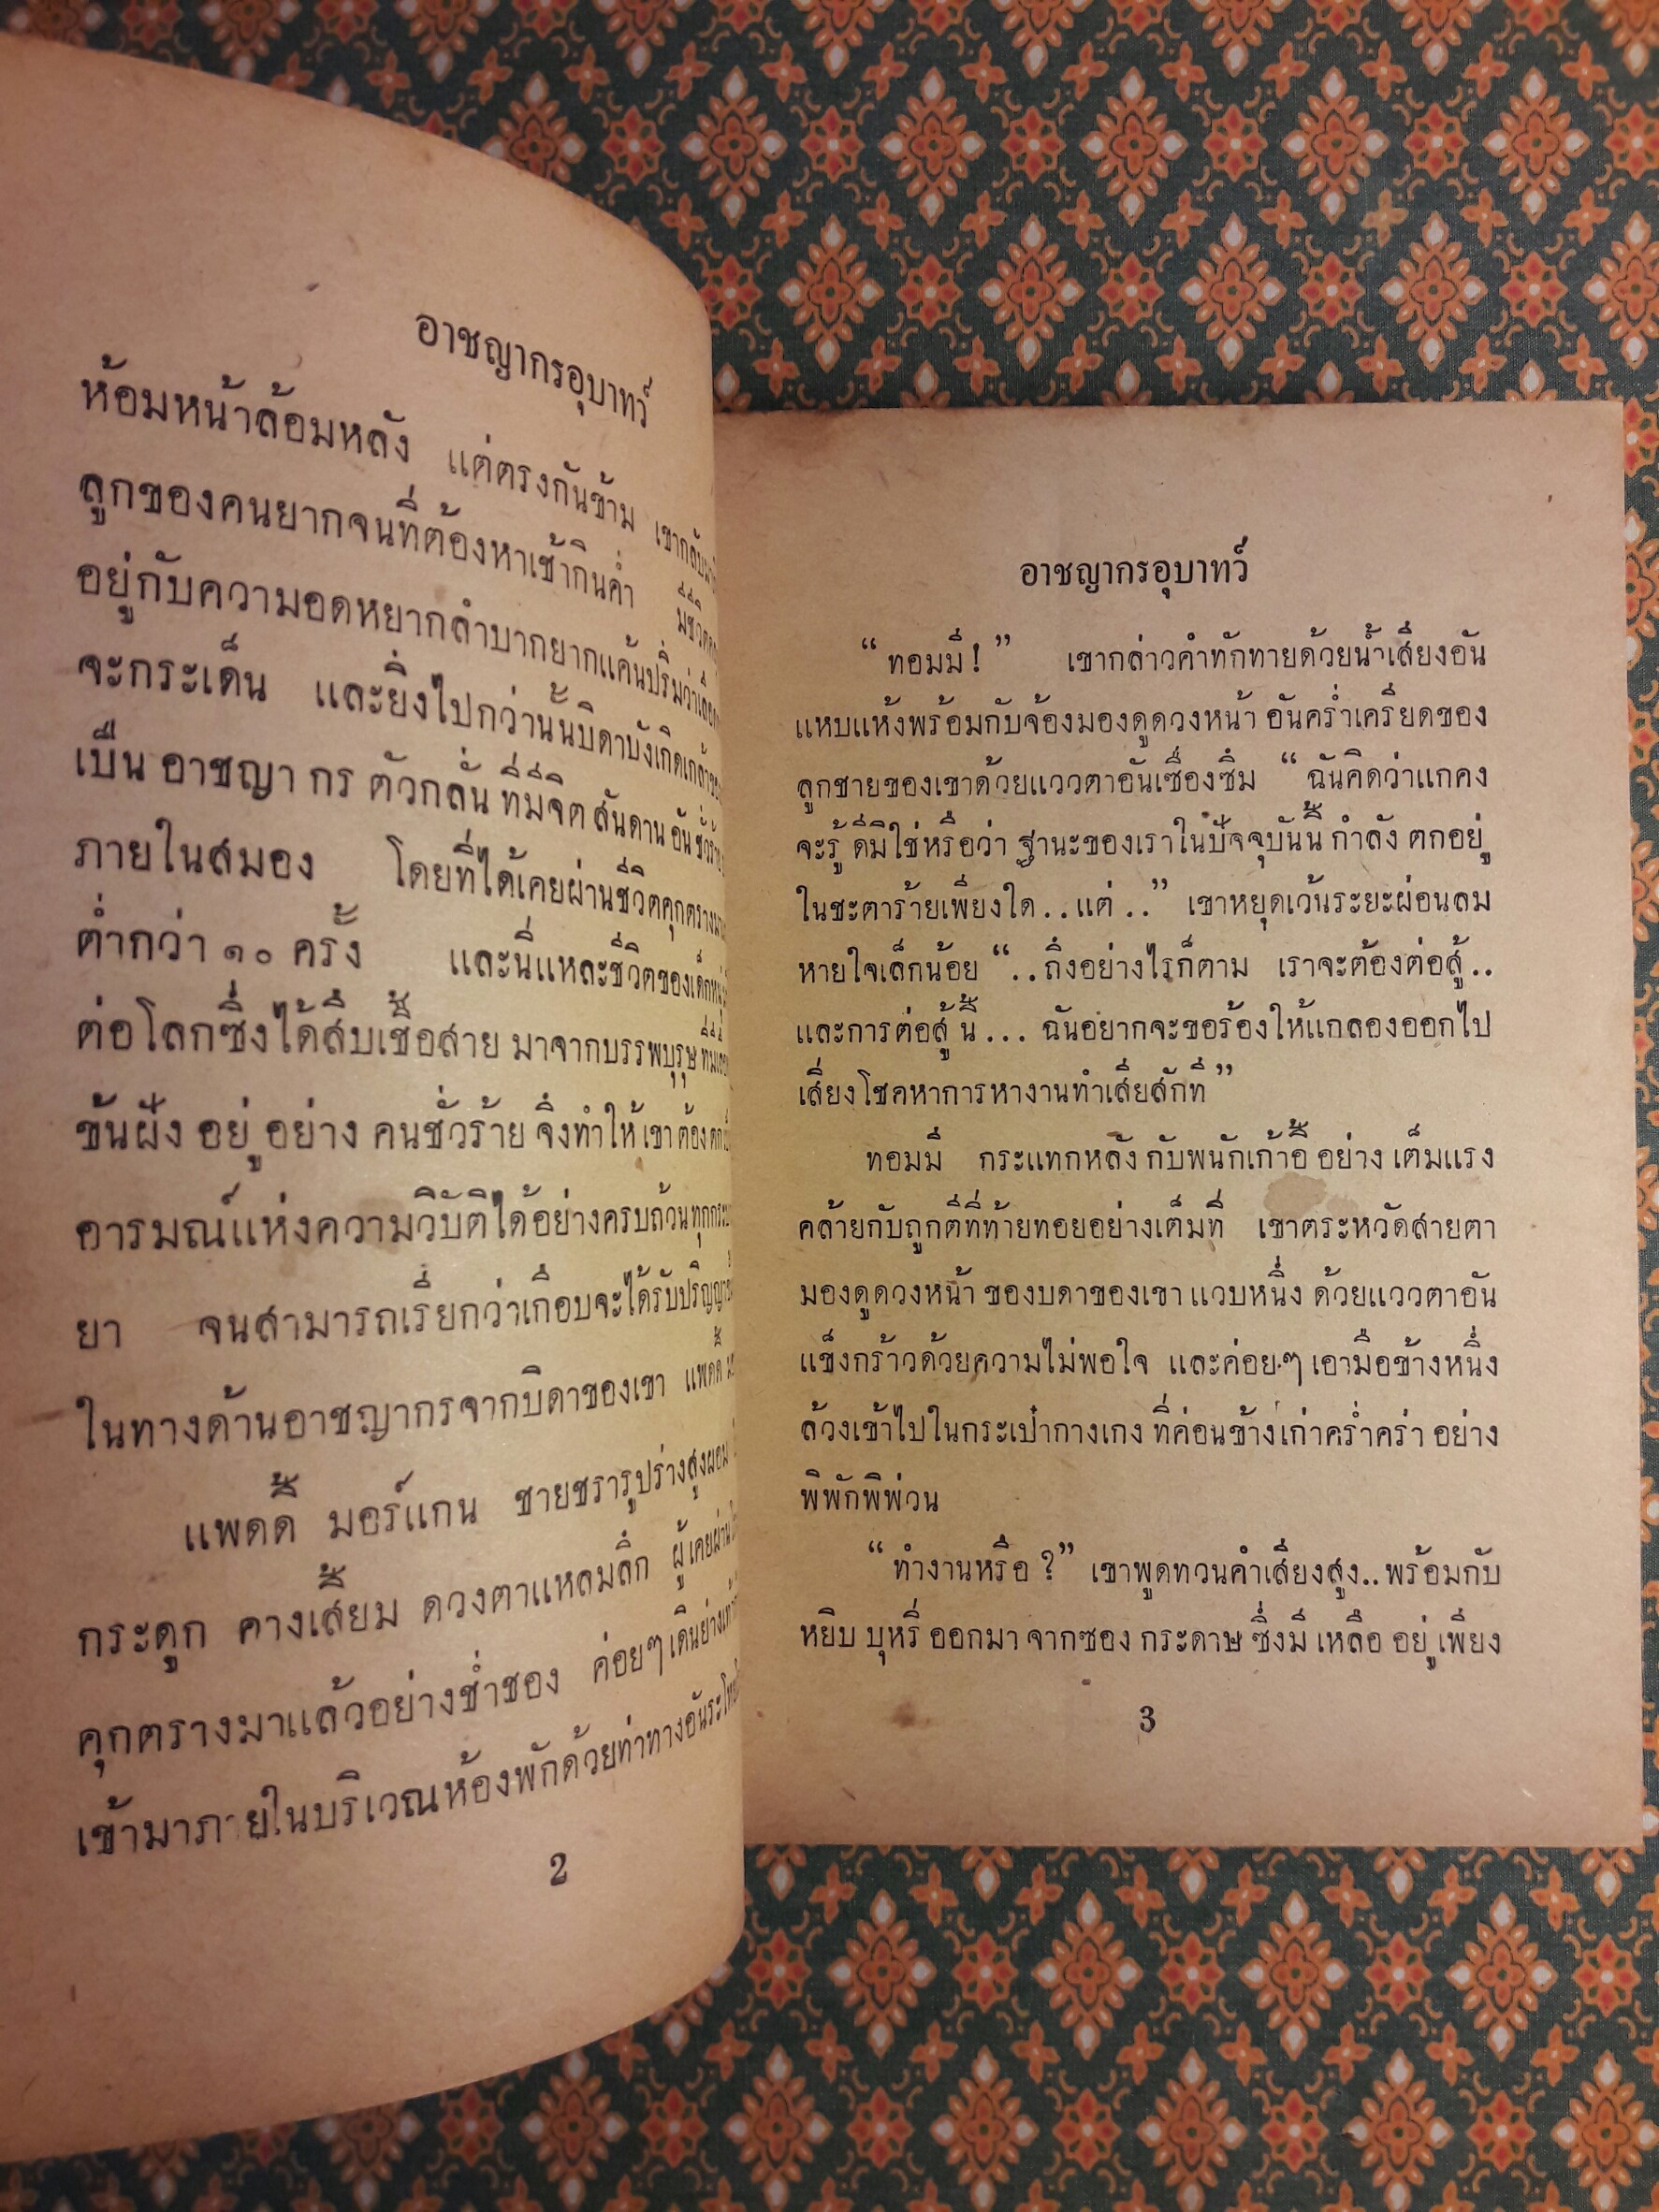 อาชญากรอุบาทว์
ห้อมหน้าล้อมหลัง แต่ตรงกันข้าม
ลูกของคนยากจนที่ต้องหาเช้ากินค่ำ
อยู่กับความอดหยากลำบากยากแค้นปริ่มว่าเลือด
จะกระเด็น และยิ่งไปกว่านั้นบิดาบังเกิดเกล้าของ
เบีน อาชญา กร ตัวกลั่น ที่มีจิต สันดาน อัน ชั่วร้าย
ภายในสมอง โดยที่ได้เคยผ่านชีวิตคุกตราง
ต่ำกว่า ๑๐ ครั้ง และนี่แหละชีวิตของเด็ก
ต่อโลกซึ่งได้สืบเชื้อสาย มาจากบรรพบุรุษ
ข้นฝัง อยู่ อย่าง คนชั่วร้าย จึงทำให้ เขา ต้อง
อารมณ์แห่งความวิบัติได้อย่างครบถ้วน
ยา จนสามารถเรียกว่าเกือบจะได้รับปริญญา
ในทางด้านอาชญากรจากบิดาของเขา แพดดี้
แพดดี้ มอร์แกน ชายชรารูปร่างสูงผอม
กระดูก คางเสี้ยม ดวงตาแหลมลึก ผู้ เคยผ่าน
คุกตรางมาแล้วอย่างช่ำชอง ค่อยๆ เดินย่าง
เข้ามาภายในบริเวณห้องพักด้วยท่าทางอัน
2
อาชญากรอุบาทว์
“ ทอมมี่ ! ” เขากล่าวคำทักทายด้วยน้ำเสียงอัน
แหบแห้งพร้อมกับจ้องมองดูดวงหน้า อันคร่ำเครียดของ
ลูกชายของเขาด้วยแววตาอันเซื่องซึม “ ฉันคิดว่าแกคง
จะรู้ ดีมิใช่หรือว่า ฐานะของเราในปัจจุบันนี้ กำลัง ตกอยู่
ในชะตาร้ายเพียงใด . . แต่ . . ” เขาหยุดเว้นระยะผ่อนลม
หายใจเล็กน้อย “ . . ถึงอย่างไรก็ตาม เราจะต้องต่อสู้ . .
และการต่อสู้ นี้ . . . ฉันอยากจะขอร้องให้แกลองออกไป
เสี่ยงโชคหาการหางานทำเสียสักที ”
ทอมมี่ กระแทกหลัง กับพนักเก้าอี้ อย่าง เต็มแรง
คล้ายกับถูกตีที่ท้ายทอยอย่างเต็มที่ เขาตระหวัดสายตา
มองดูดวงหน้า ของบดาของเขา แวบหนึ่ง ด้วยแววตาอัน
แข็งกร้าวด้วยความไม่พอใจ และค่อยๆ เอามือข้างหนึ่ง
ล้วงเข้าไปในกระเป๋ากางเกง ที่ค่อนข้างเก่าคร่ำคร่า อย่าง
พิพักพิพ่วน
“ ทำงานหรือ ? ” เขาพูดทวนคำเสียงสูง . . พร้อมกับ
หยิบ บุหรี่ ออกมา จากซอง กระดาษ ซึ่งมี เหลือ อยู่ เพียง
3